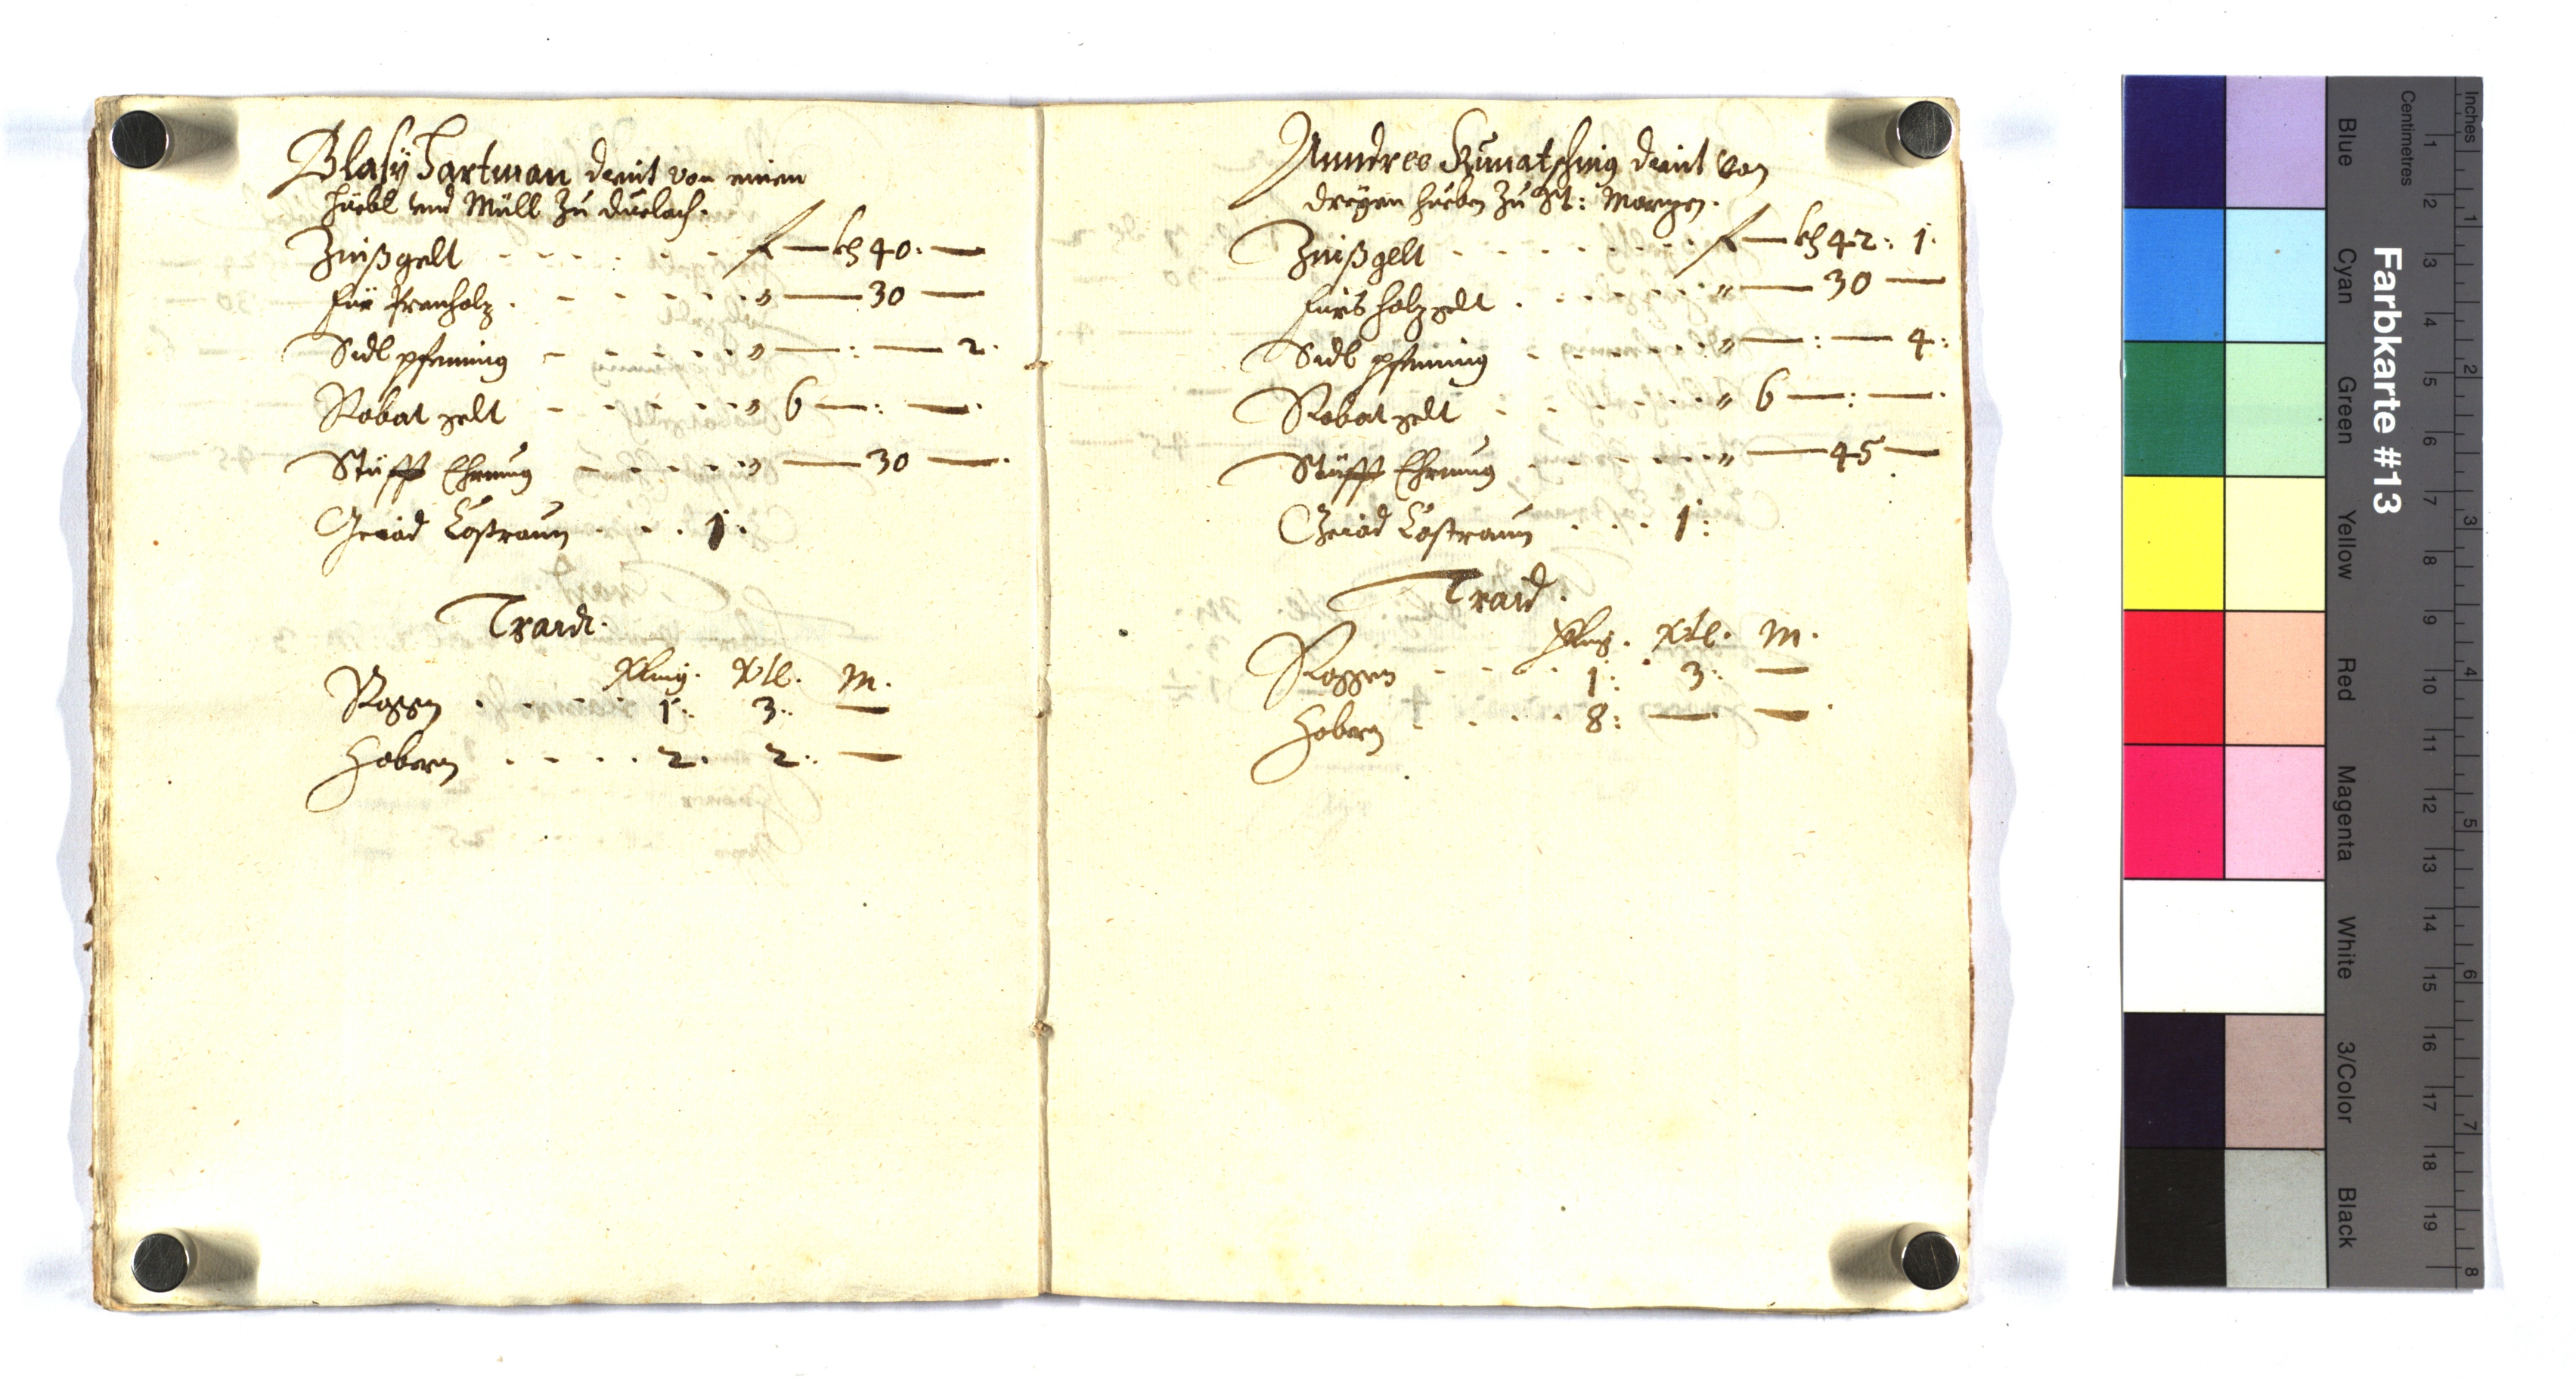 Blasÿ Hartman dient von einem
Hüebl vnd Müll zu Duelach.
Zinßgelt - - - - - - f — kh 40: —
Für Prenholz. - - - - - " — 30 —
Sidl pfenning - - - - - " — : — 2.
Robat gelt - - - - - " 6 — : — .
Stüfft Ehrung - - - - " — 30 — .
Castraun - . . 1.
Traidt.
Vtl. M.
Roggen . - - - - 1: 3: —
Habern . - . . . 2. 2: —
Anndree Kunatschnig dient von
dreÿen Hueben zu St: Morgen.
Zinßgelt - - - - - - f — kh 42: 1.
Fürs Holzgelt . - - - - " — 30 —
Sidl pfenning - - - - - " — : — 4:
Robat gelt - - - - - " 6 — : — .
Stüfft Ehrung - - - - " — 45 —
Castraun . . . 1:
Traid.
Vtl. M.
Roggen - - - . 1: 3: —
Habern - . . . 8: — —
Farbkarte #13
Blue Cyan Green Yellow Red Magenta White 3/Color Black
Centimetres 1 2 3 4 5 6 7 8 9 10 11 12 13 14 15 16 17 18 19
Inches 1 2 3 4 5 6 7 8